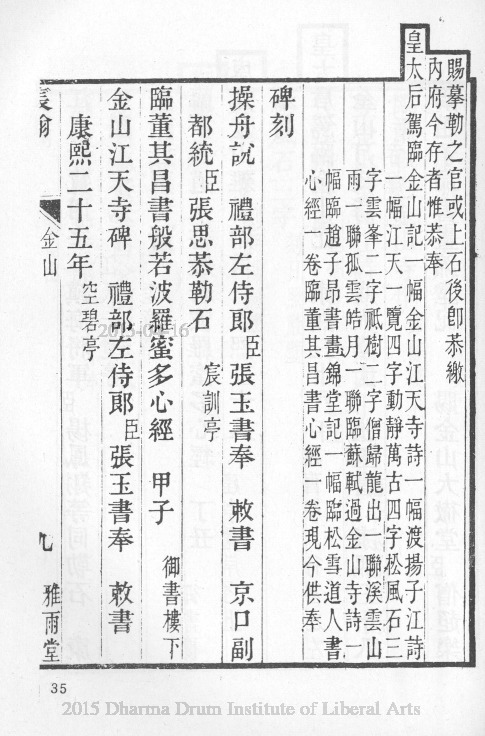 賜摹勒之官或上石後卽恭繳
內府今存者惟恭奉
皇太后駕臨金山記一幅金山江天寺詩一幅渡揚子江詩
一幅江天一覽四字動靜萬古四字松風石三
字雲峯二字祇樹二字僧歸龍出一聯溪雲山
雨一聯孤雲皓月一聯臨蘇軾過金山寺詩一
幅臨趙子昂書晝錦堂記一幅臨松雪道人書
心經一卷臨董其昌書心經一卷現今供奉
碑刻
操舟說 禮部左侍郎臣張玉書奉 敕書 京口副
都統臣張思恭勒石 宸訓亭
臨董其昌書般若波羅蜜多心經 甲子 御書樓下
金山江天寺碑 禮部左侍郎臣張玉書奉 敕書
康熙二十五年 空碧亭
金山 九 雅雨堂
35
2015 Dharma Drum Institute of Liberal Arts